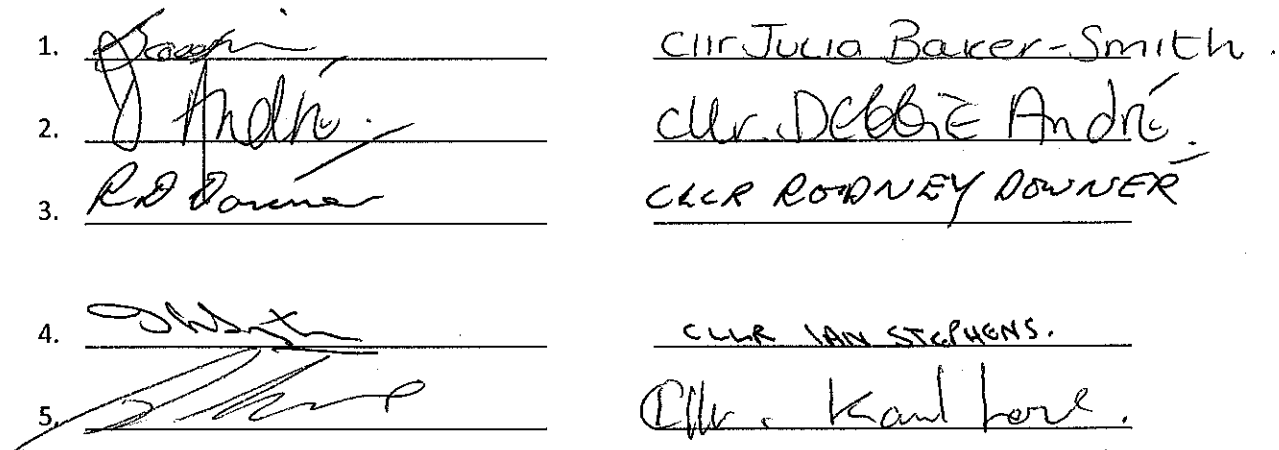 1. Cllr Julia Baker-Smith.
2. André. Cllr. Debbie André.
3. R D Downer CLLR RODNEY DOWNER
4. CLLR IAN STEPHENS.
5. Cllr. Karl Love.